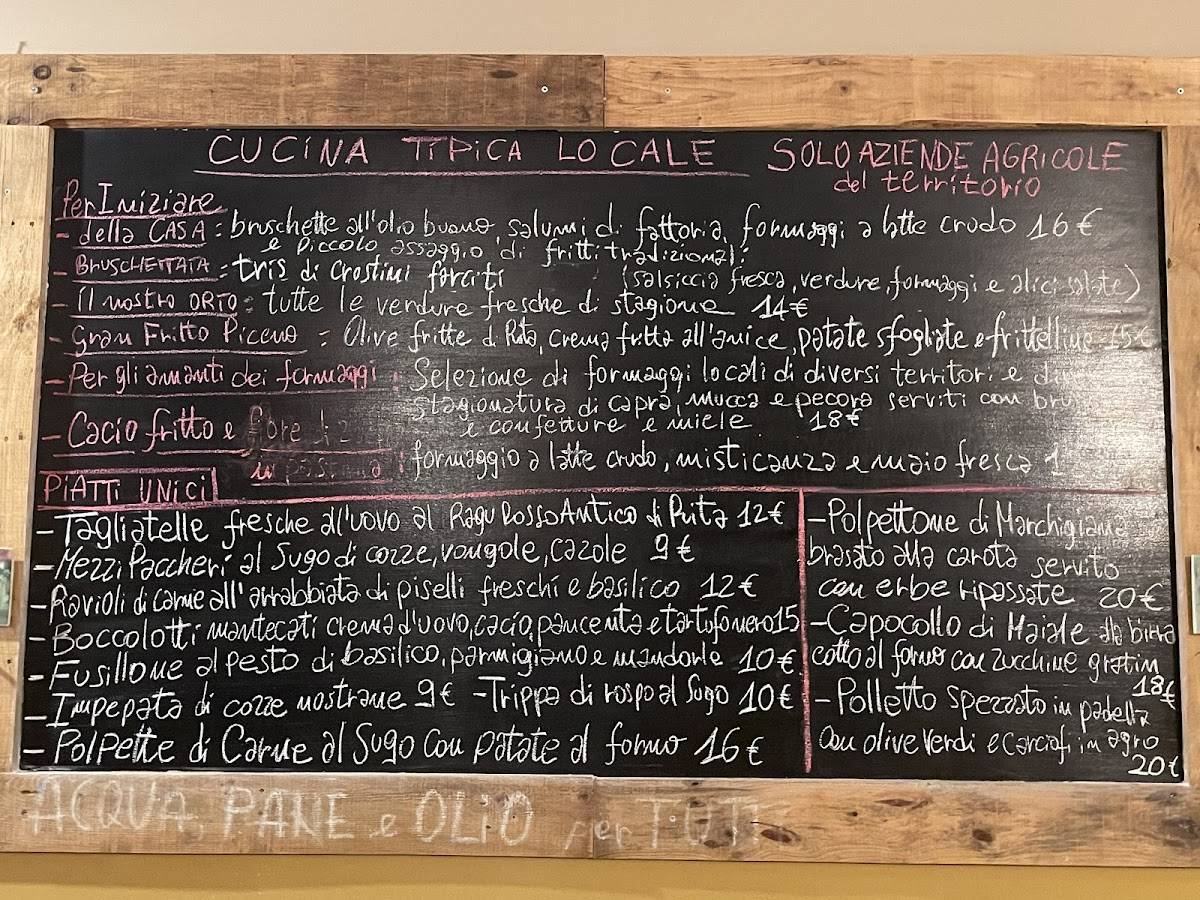 CUCINA TIPICA LOCALE
SOLO AZIENDE AGRICOLE
del territorio
Per Iniziare
- della CASA: bruschette all'olio buono, salumi di fattoria, formaggi a latte crudo 16€
e piccolo assaggio di fritti tradizionali
- BRUSCHETTATA: tris di crostini farciti (salsiccia fresca, verdure, formaggi e alici salate)
- il nostro ORTO: tutte le verdure fresche di stagione 14€
- Gran Fritto Piceno = Olive fritte di Rita, crema fritta all'anice, patate sfogliate e frittelline 15€
- Per gli amanti dei formaggi: Selezione di formaggi locali di diversi territori e
stagionatura di capra, mucca e pecora serviti con
e confetture e miele 18€
- Cacio fritto e fiore di
formaggio a latte crudo, misticanza e maio fresca
PIATTI UNICI
- Tagliatelle fresche all'uovo al Ragù Rosso Antico di Rita 12€
- Mezzi Paccheri al Sugo di cozze, vongole, cazole 9€
- Ravioli di Carne all'arrabbiata di piselli freschi e basilico 12€
- Boccolotti mantecati crema d'uovo, cacio, pancenta e tartufo nero 15
- Fusillone al pesto di basilico, parmigiano e mandorle 10€
- Impepata di cozze nostrane 9€ - Trippa di rospo al Sugo 10€
- Polpette di Carne al Sugo con patate al forno 16€
- Polpettone di Marchigiana
brasato alla carota servito
con erbe ripassate 20€
- Capocollo di Maiale alla birra
cotto al forno con zucchine gratin
18€
- Polletto spezzato in padella
con olive verdi e carciofi in agro
20€
ACQUA, PANE e OLIO per